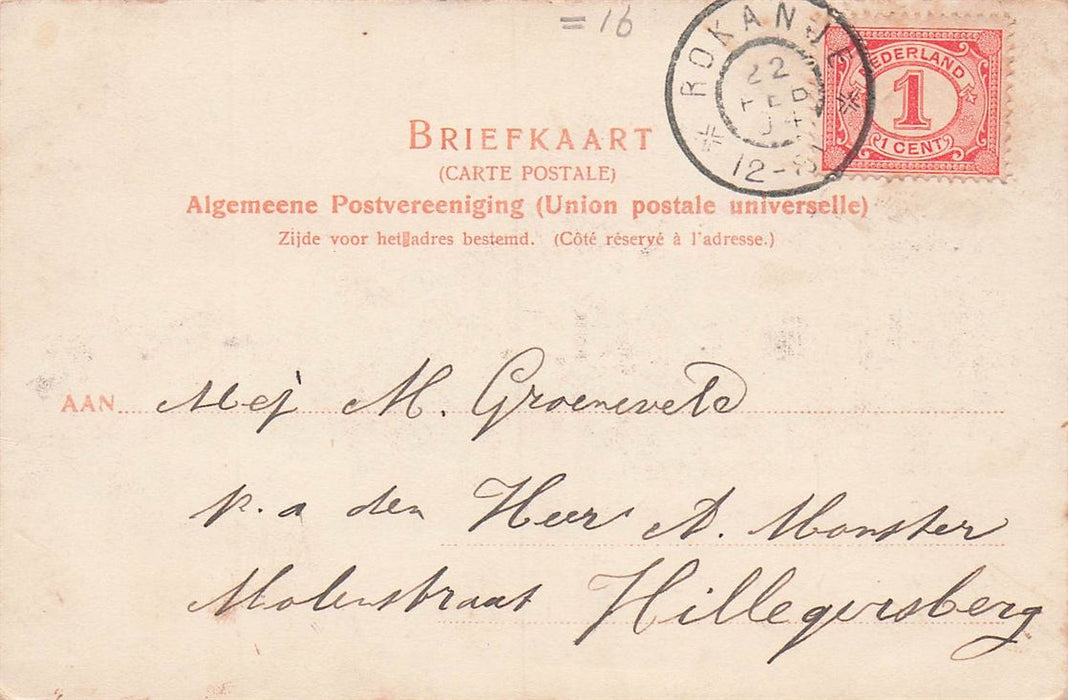 = 16
ROKANJE
22
FEB
04
12-8
NEDERLAND
1
1 CENT
BRIEFKAART
(CARTE POSTALE)
Algemeene Postvereeniging (Union postale universelle)
Zijde voor het adres bestemd. (Côté réservé à l'adresse.)
AAN Mej M. Groeneveld
p. a den Heer A. Monster
Molenstraat Hillegersberg